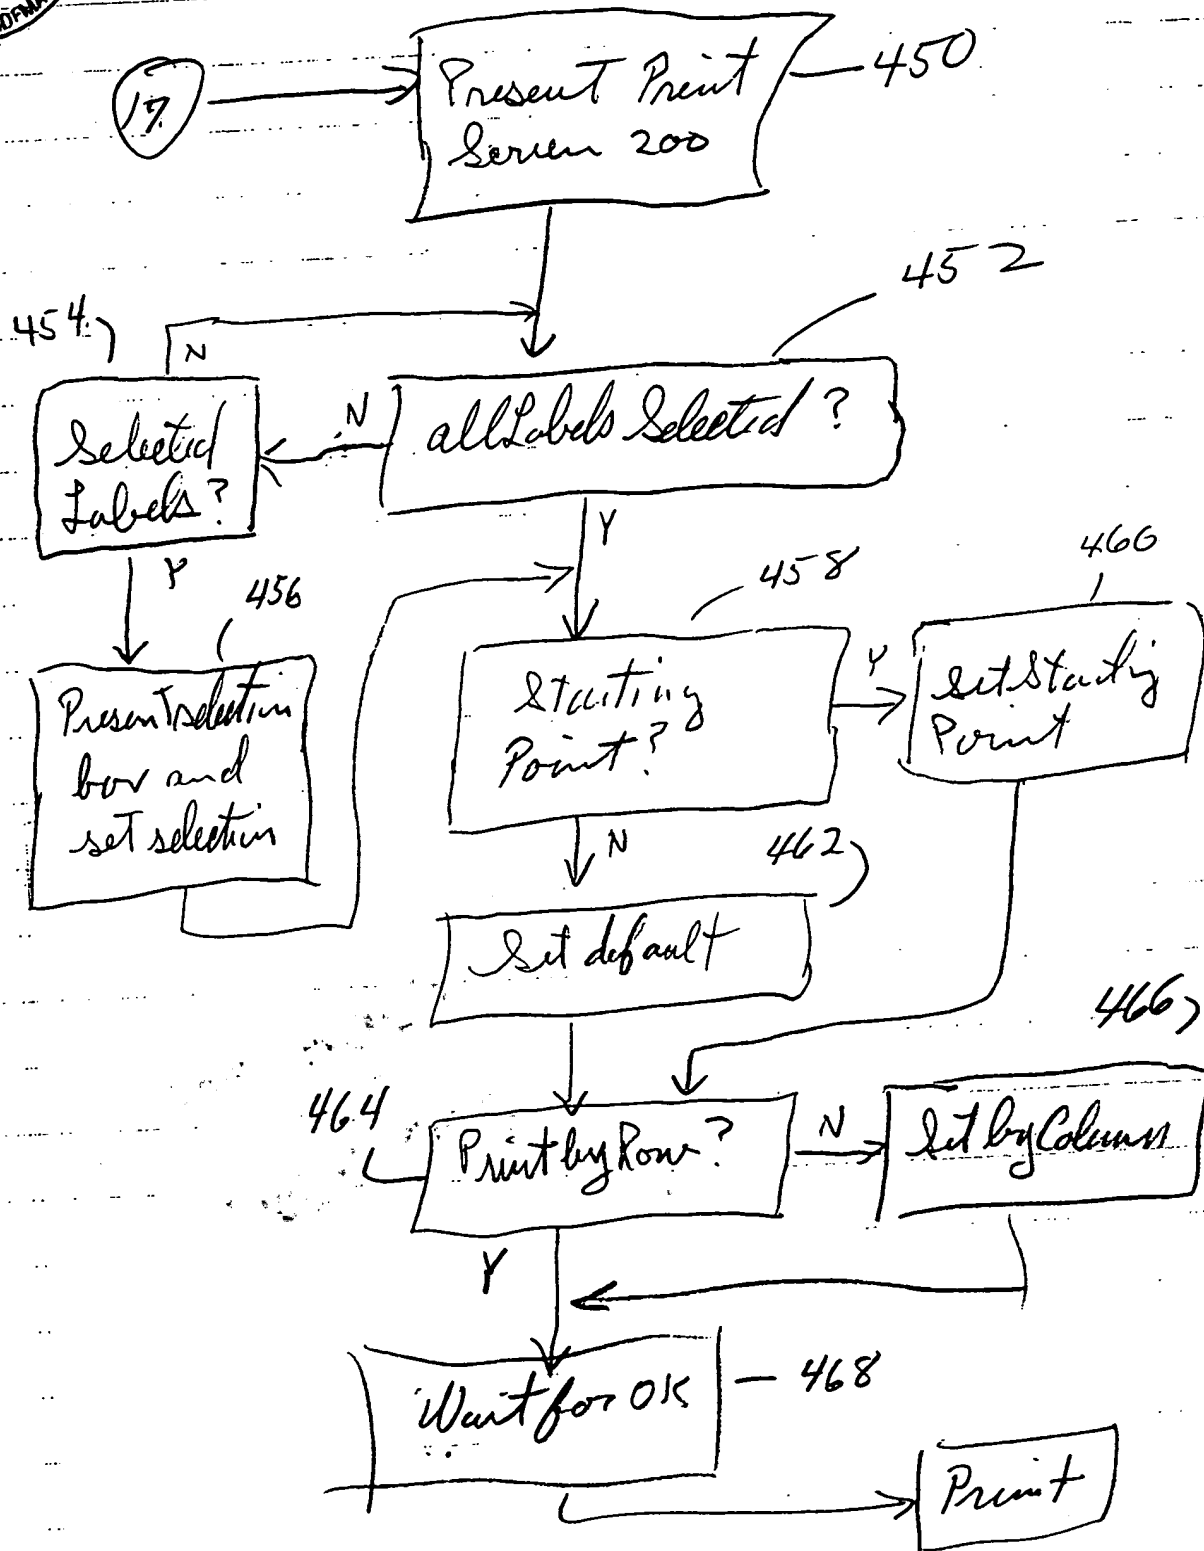 17
Present Print
Screen 200
450
452
454
N
Selected
Labels?
N
all Labels Selected?
Y
Y
456
458
460
Present selection
box and
set selection
Starting
Point?
Y
Set Starting
Point
N
462
Set default
466
464
Print by Row?
N
Set by Column
Y
Wait for OK
468
Print